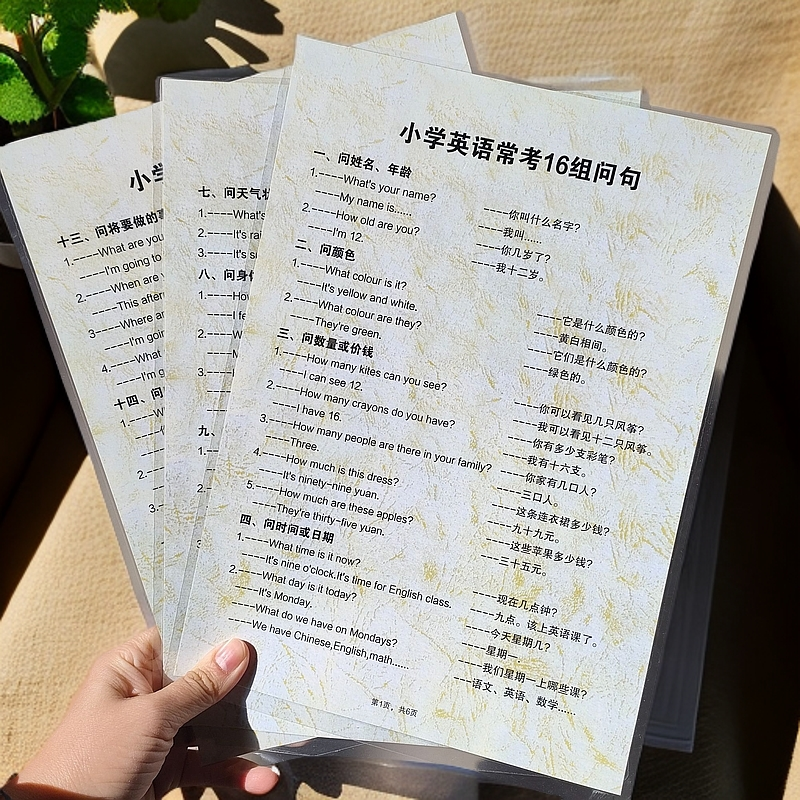 小学英语常考16组问句
一、问姓名、年龄
1.----What's your name? ----你叫什么名字?
----My name is...... ----我叫......
2.----How old are you? ----你几岁了?
----I'm 12. ----我十二岁。
二、问颜色
1.----What colour is it? ----它是什么颜色的?
----It's yellow and white. ----黄白相间。
2.----What colour are they? ----它们是什么颜色的?
----They're green. ----绿色的。
三、问数量或价钱
1.----How many kites can you see? ----你可以看见几只风筝?
----I can see 12. ----我可以看见十二只风筝。
2.----How many crayons do you have? ----你有多少支彩笔?
----I have 16. ----我有十六支。
3.----How many people are there in your family? ----你家有几口人?
----Three. ----三口人。
4.----How much is this dress? ----这条连衣裙多少钱?
----It's ninety-nine yuan. ----九十九元。
5.----How much are these apples? ----这些苹果多少钱?
----They're thirty-five yuan. ----三十五元。
四、问时间或日期
1.----What time is it now? ----现在几点钟?
----It's nine o'clock.It's time for English class. ----九点。该上英语课了。
2.----What day is it today? ----今天星期几?
----It's Monday. ----星期一。
----What do we have on Mondays? ----我们星期一上哪些课?
----We have Chinese,English,math...... ----语文、英语、数学......
第1页,共6页
七、问天气状
1.----What's
2.----It's rai
3.----It's
八、问身
1.----How
I fe
2.----W
3.----
九、
1.---
2.---
小学
十三、问将要做的事
1.----What are you
----I'm going to
2.----When are
----This after
3----Where ar
----I'm goin
4.----What
----I'm g
十四、问
1.----W
2.----
3.---